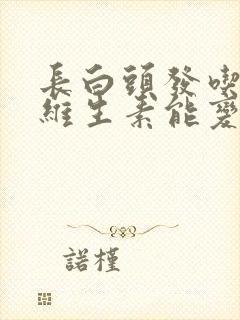 長白頭發喫
維生素能變
諾槿